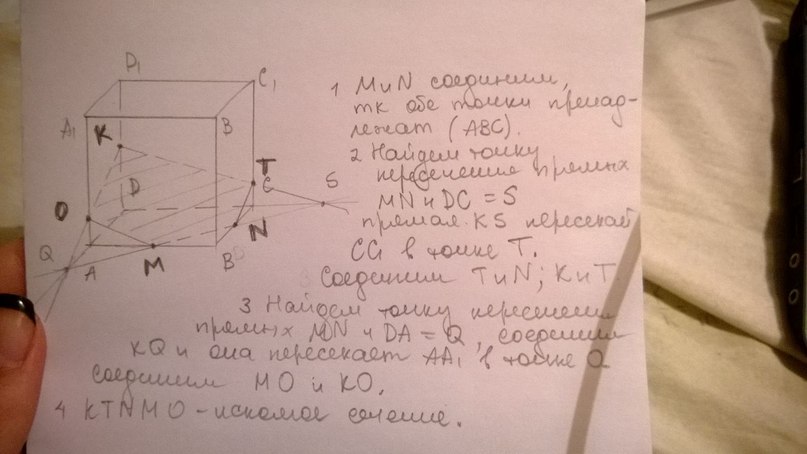 D1
C1
A1
K
B
T
C
S
D
O
N
Q
A
M
B
1 М и N соединим,
тк обе точки принад-
лежат (ABC).
2 Найдем точку
пересечения прямых
MN и DC = S
прямая KS пересекай
CC1 в точке T.
Соединим T и N; K и T
3 Найдем точку пересечения
прямых MN и DA = Q, соединим
KQ и она пересекает AA1 в точке O
Соединим MO и KO.
4 KTNMO - искомое сечение.